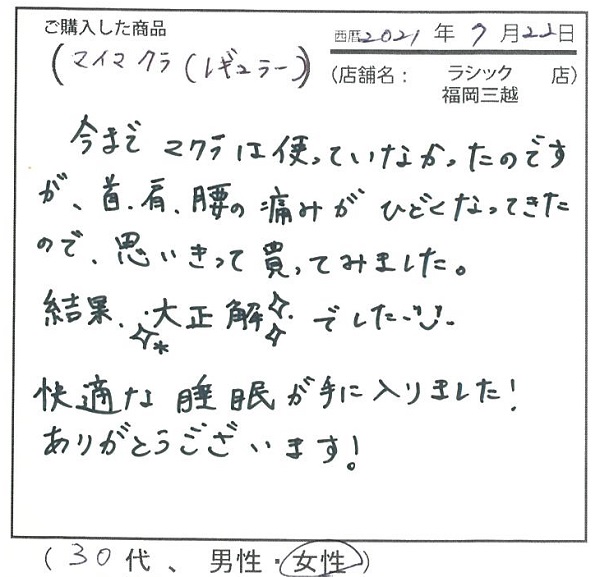 ご購入した商品
(マイマクラ(レギュラー))
西暦2021年9月22日
(店舗名： ラシック 福岡三越 店)
今まで マクラは使っていなかったのです
が、首、肩、腰の痛みが ひどくなってきた
ので、思いきって買ってみました。
結果、大正解でした
快適な 睡眠が手に入りました!
ありがとうございます!
(30代、男性・女性)